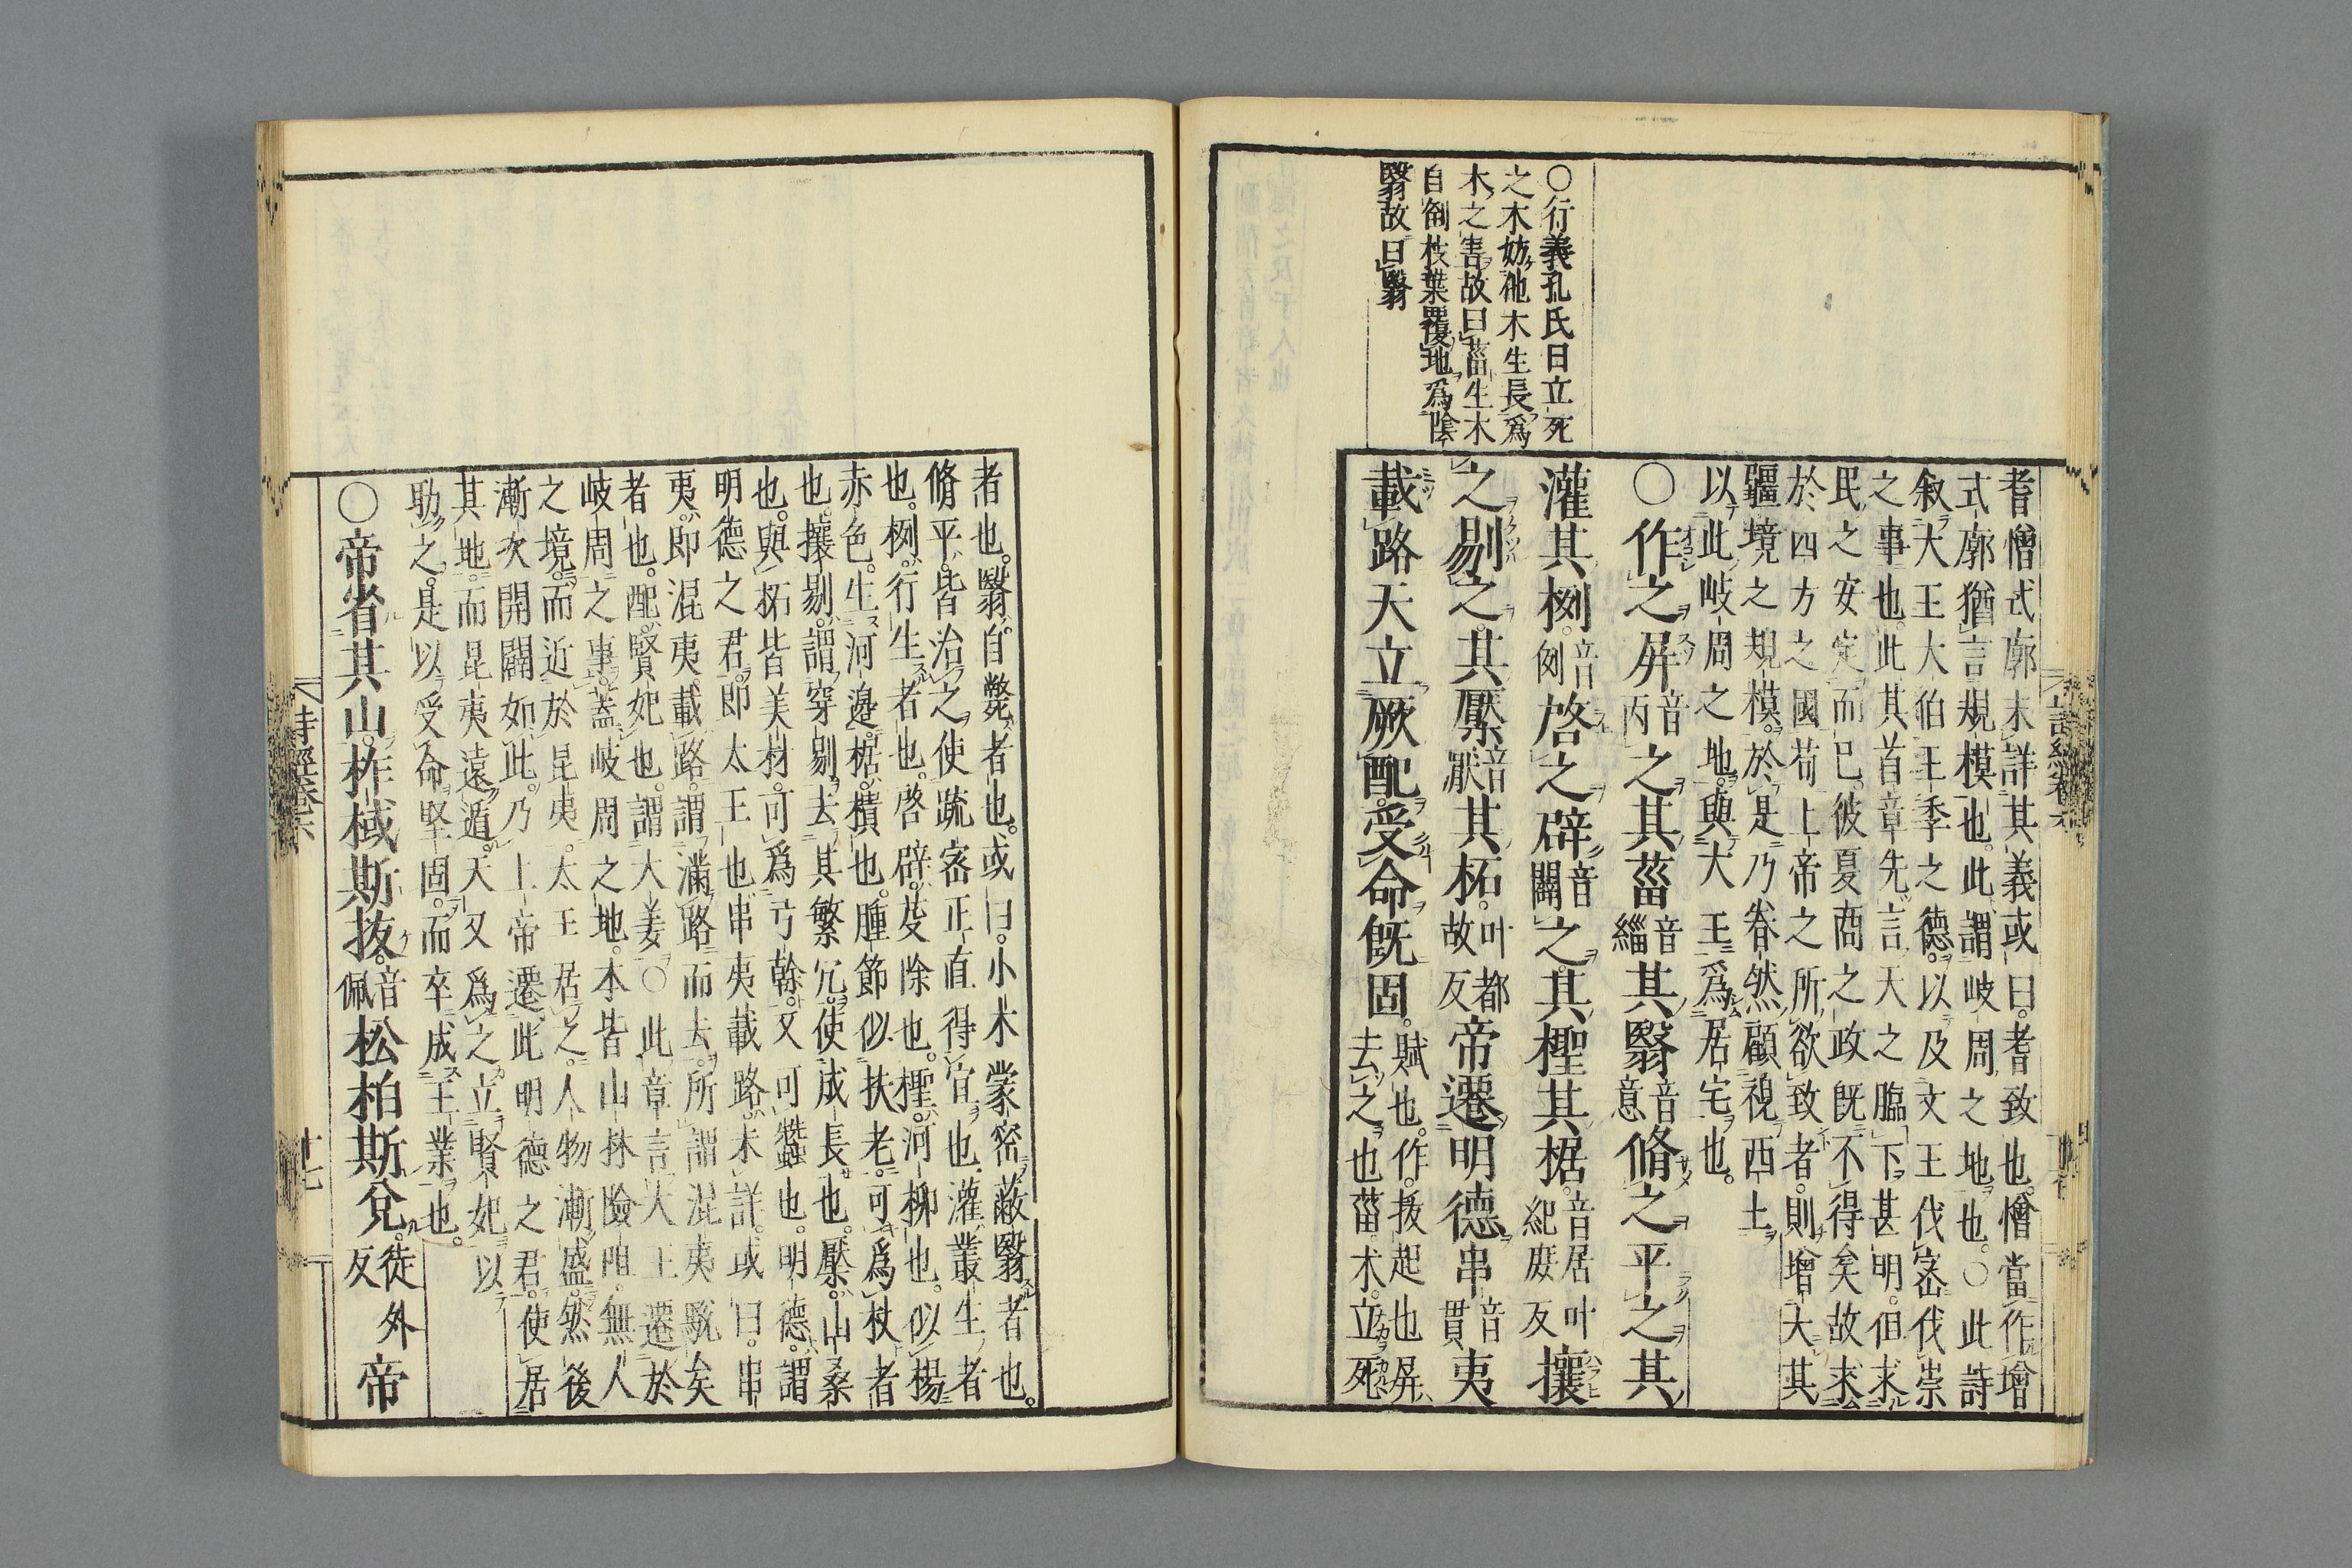 耆憎式廓末詳其義或曰耆致也憎當作增
式廓猶言規模也此謂岐周之地也〇此詩
叙大王大伯王季之德以及文王伐密伐崇
之事也此其首章先言天之臨下甚明但求
民之安定而已彼夏商之政旣不得矣故求
於四方之國苟上帝之所欲致者則增大其
疆境之規模於是乃眷然顧視西土
以此岐周之地與大王爲居宅也
〇作之屛音丙之其菑音緇其翳音意脩之平之其
灌其栵音例啓之辟音闢之其檉其椐音居叶紀庶反攘
之剔之其檿音厭其柘叶都故反帝遷明德串音貫夷
載路天立厥配受命旣固賦也作拔起也屛去之也菑木立死
〇行義孔氏曰立死
之木妨他木生長爲
木之害故曰菑生木
自倒枝葉覆地爲陰
翳故曰翳
者也翳自斃者也或曰小木蒙密蔽翳者也
脩平皆治之使疏密正直得宜也灌叢生者
也栵行生者也啓辟芟除也檉河柳也似楊
赤色生河邊椐樻也腫節似扶老可爲杖者
也攘剔謂穿剔去其繁冗使成長也檿山桑
也與柘皆美材可爲弓榦又可蠶也明德謂
明德之君即太王也串夷載路未詳或曰串
夷即混夷載路謂滿路而去所謂混夷駾矣
者也配賢妃也謂大姜〇此章言大王遷於
岐周之事蓋岐周之地本皆山林險阻無人
之境而近於昆夷太王居之人物漸盛然後
漸次開闢如此乃上帝遷此明德之君使居
其地而昆夷遠遁天又爲之立賢妃以
助之是以受命堅固而卒成王業也
〇帝省其山柞棫斯拔音佩松柏斯兌徒外反帝
詩經卷六
廿七